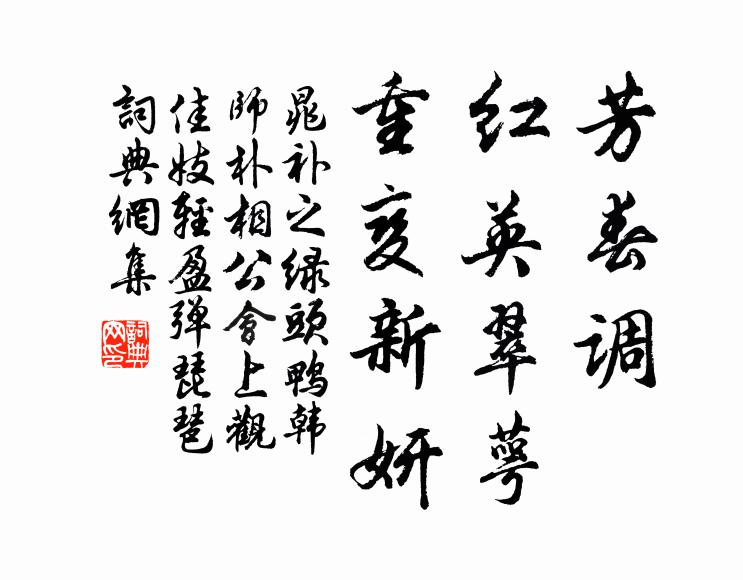 芳春调
红英翠萼
重变新妍
晁补之绿头鸭韩
师朴相公会上觀
佳妓輕盈弹琵琶
詞典網集
詞典网印